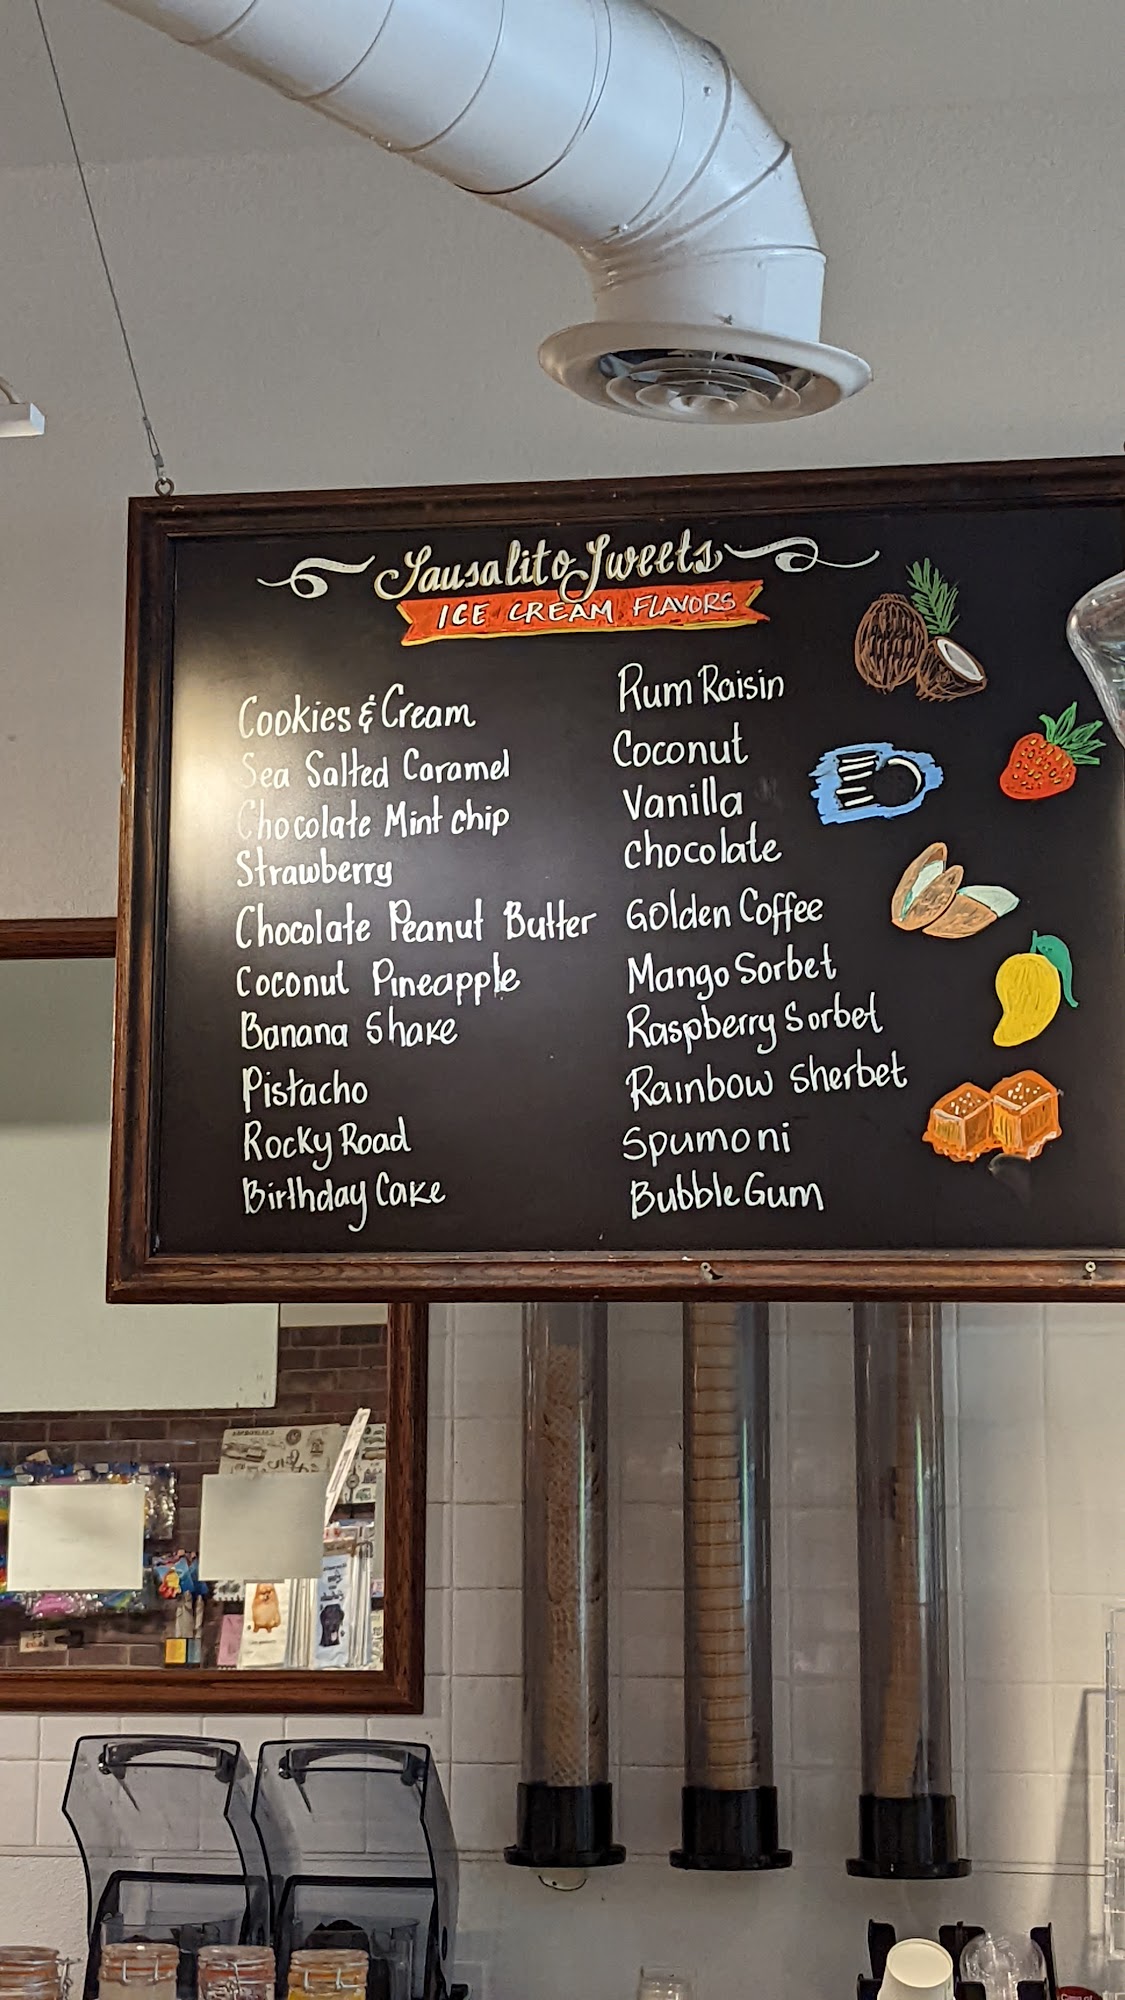 Sausalito Sweets
ICE CREAM FLAVORS
Cookies & Cream
Sea Salted Caramel
Chocolate Mint chip
Strawberry
Chocolate Peanut Butter
Coconut Pineapple
Banana Shake
Pistacho
Rocky Road
Birthday Cake
Rum Raisin
Coconut
Vanilla
chocolate
Golden Coffee
Mango Sorbet
Raspberry Sorbet
Rainbow Sherbet
Spumoni
Bubble Gum